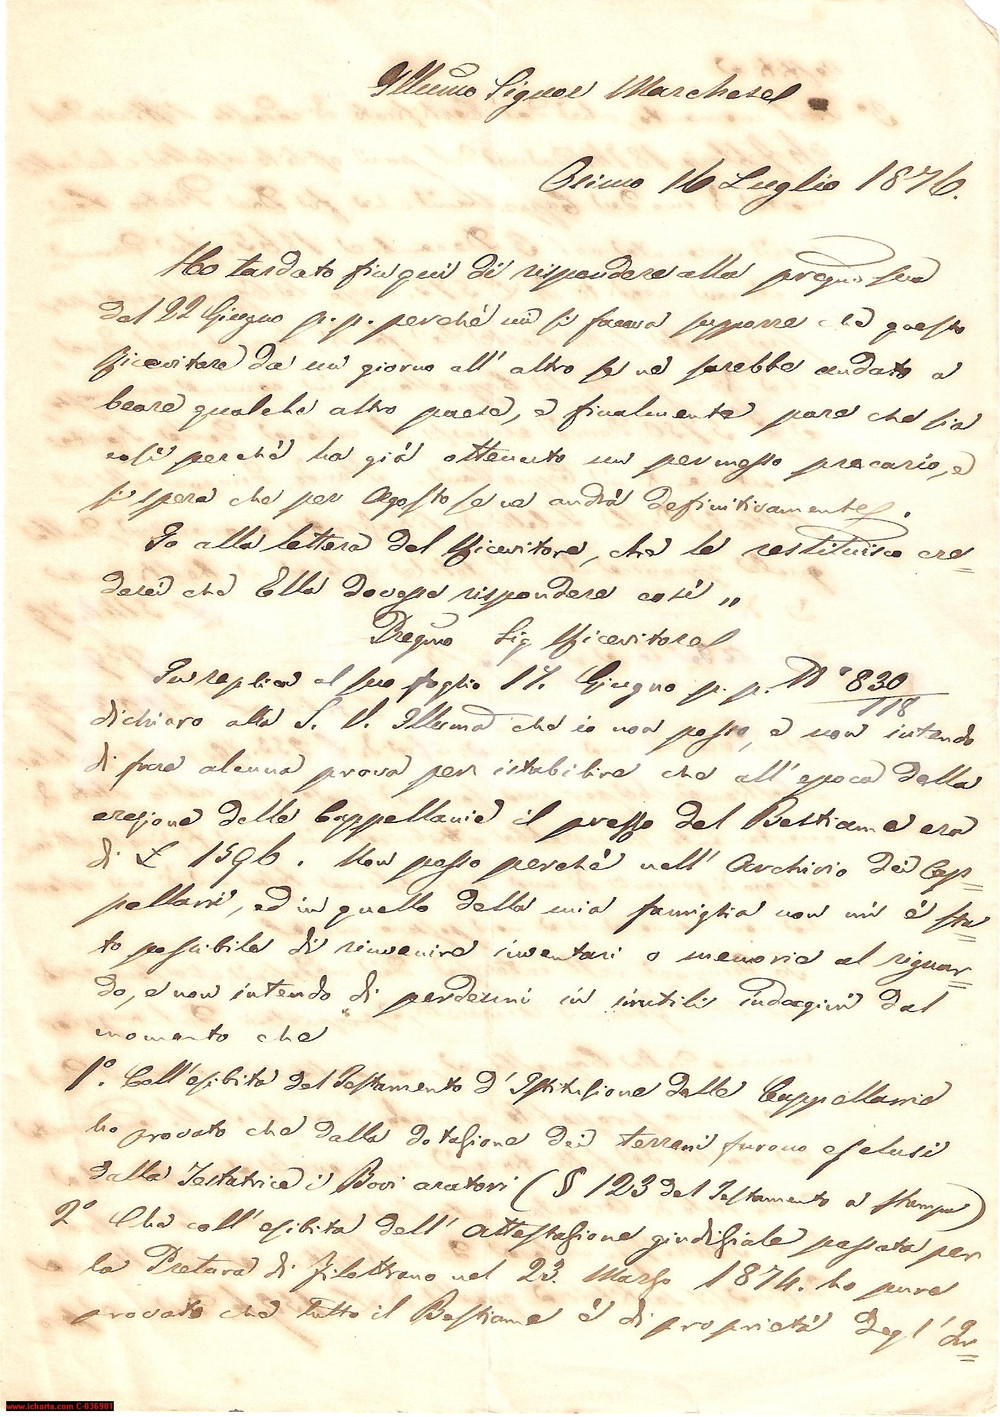 Illmo Signor Marchese
Osimo 16 Luglio 1876.
Ho tardato fin qui di rispondere alla pregma sua
del 22 Giugno p. p. perchè mi si faceva supporre che questo
Ricevitore da un giorno all' altro se ne sarebbe andato a
beare qualche altro paese, e finalmente pare che sia
così perchè ha già ottenuto un permesso precario, e
si spera che per Agosto se ne andrà definitivamente.
Io alla lettera del Ricevitore, che le restituisco cre=
derei che Ella dovesse rispondere così „
Pregmo Sig Ricevitore
In replica al suo foglio 17. Giugno p. p. N° 830/118
dichiaro alla S. V. Illma che io non posso, e non intendo
di fare alcuna prova per istabilire che all' epoca della
erezione delle Cappellanie il prezzo del Bestiame era
di £ 1596. Non posso perchè nell' Archivio dei Cap=
pellani, ed in quello della mia famiglia non mi è sta=
to possibile di rinvenire inventari o memorie al riguar=
do, e non intendo di perdermi in inutili indagini dal
momento che
1°. Coll' esibita del Testamento d' Istituzione delle Cappellanie
ho provato che dalla dotazione dei terreni furono esclusi
dalla Testatrice i Bovi aratori (§ 123 del Testamento a stampa)
2° Che coll' esibita dell' attestazione giudiziale passata per
la Pretura di Filottrano nel 23. Marzo 1874. ho pure
provato che tutto il Bestiame è di proprietà degl'
www.icharta.com C-036901